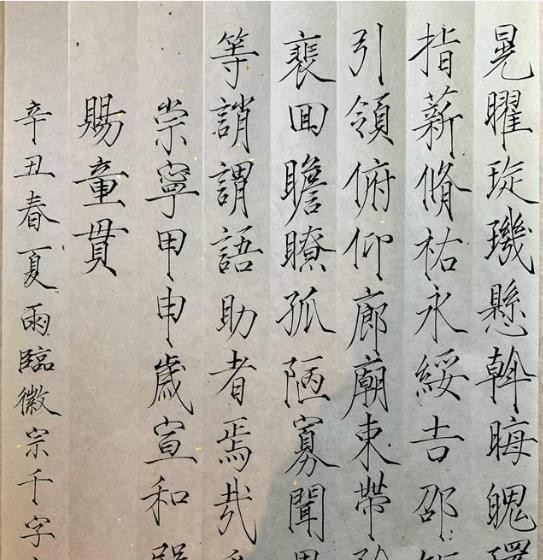 晃曜琁璣懸斡晦魄環
指薪脩祐永綏吉邵
引領俯仰廊廟束帶
裵回瞻瞭孤陋寡聞
等誚謂語助者焉哉
崇寧甲申歲宣和
賜童貫
辛丑春夏雨臨徽宗千字